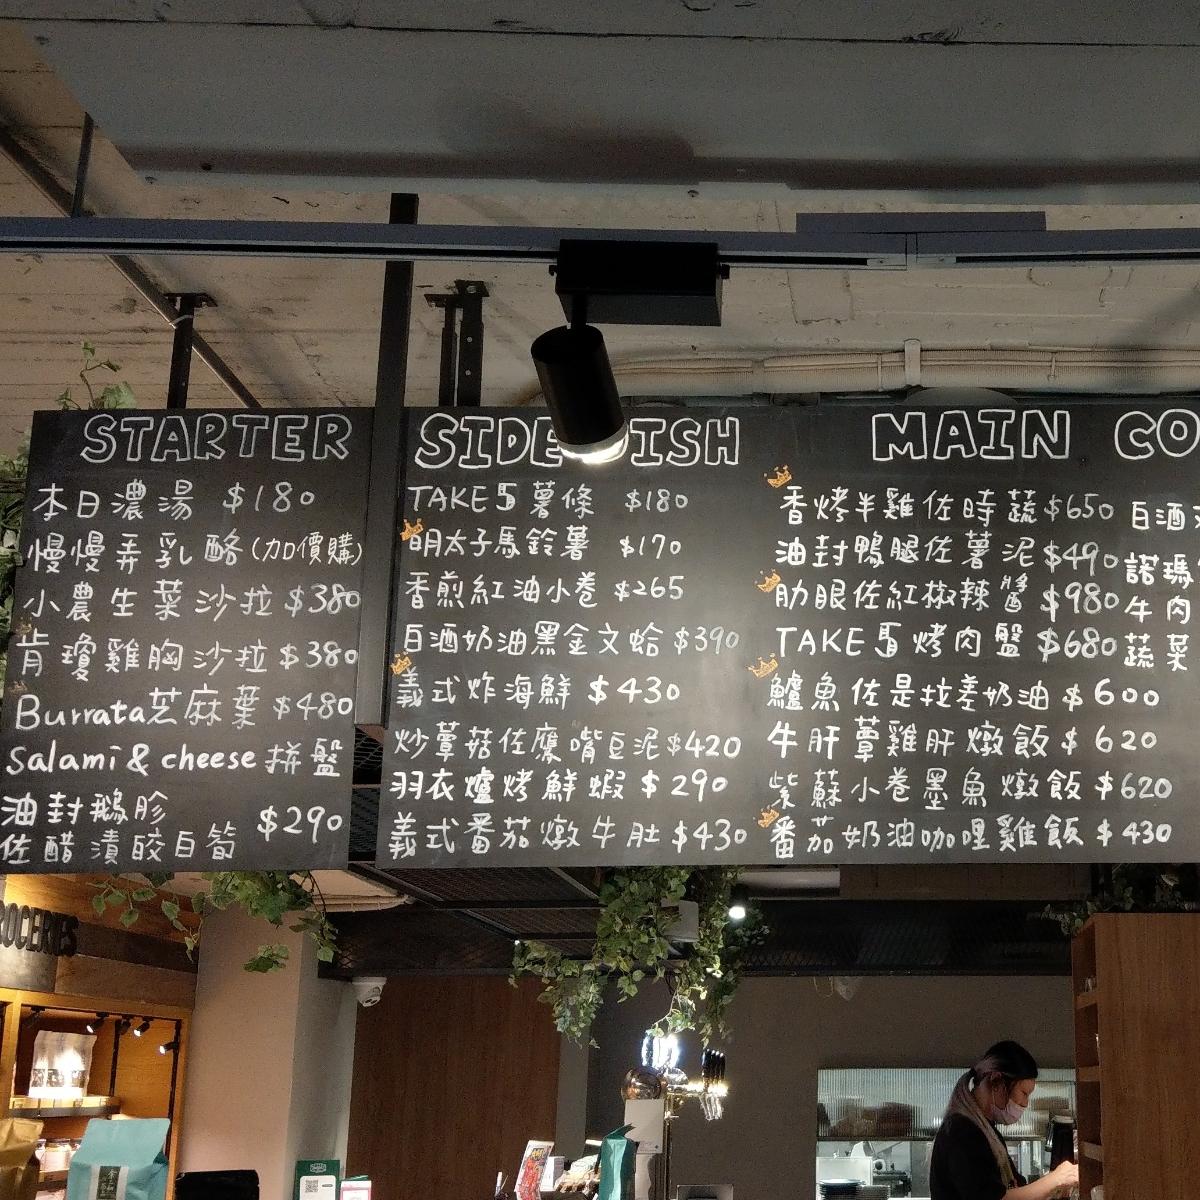 STARTER
本日濃湯 $180
慢慢弄乳酪(加價購)
小農生菜沙拉 $380
肯瓊雞胸沙拉 $380
Burrata芝麻葉 $480
Salami & cheese 拼盤
油封鵝胗
佐醋漬皎白筍 $290
SIDE DISH
TAKE 5 薯條 $180
明太子馬鈴薯 $170
香煎紅油小卷 $265
白酒奶油黑金文蛤 $390
義式炸海鮮 $430
炒蕈菇佐鷹嘴豆泥 $420
羽衣爐烤鮮蝦 $290
義式番茄燉牛肚 $430
MAIN CO
香烤半雞佐時蔬 $650
油封鴨腿佐薯泥 $490
肋眼佐紅椒辣醬 $980
TAKE 5 烤肉盤 $680
鱸魚佐是拉差奶油 $600
牛肝蕈雞肝燉飯 $620
紫蘇小卷墨魚燉飯 $620
番茄奶油咖哩雞飯 $430
白酒
諾瑪
牛肉
蔬菜
ROCERIES